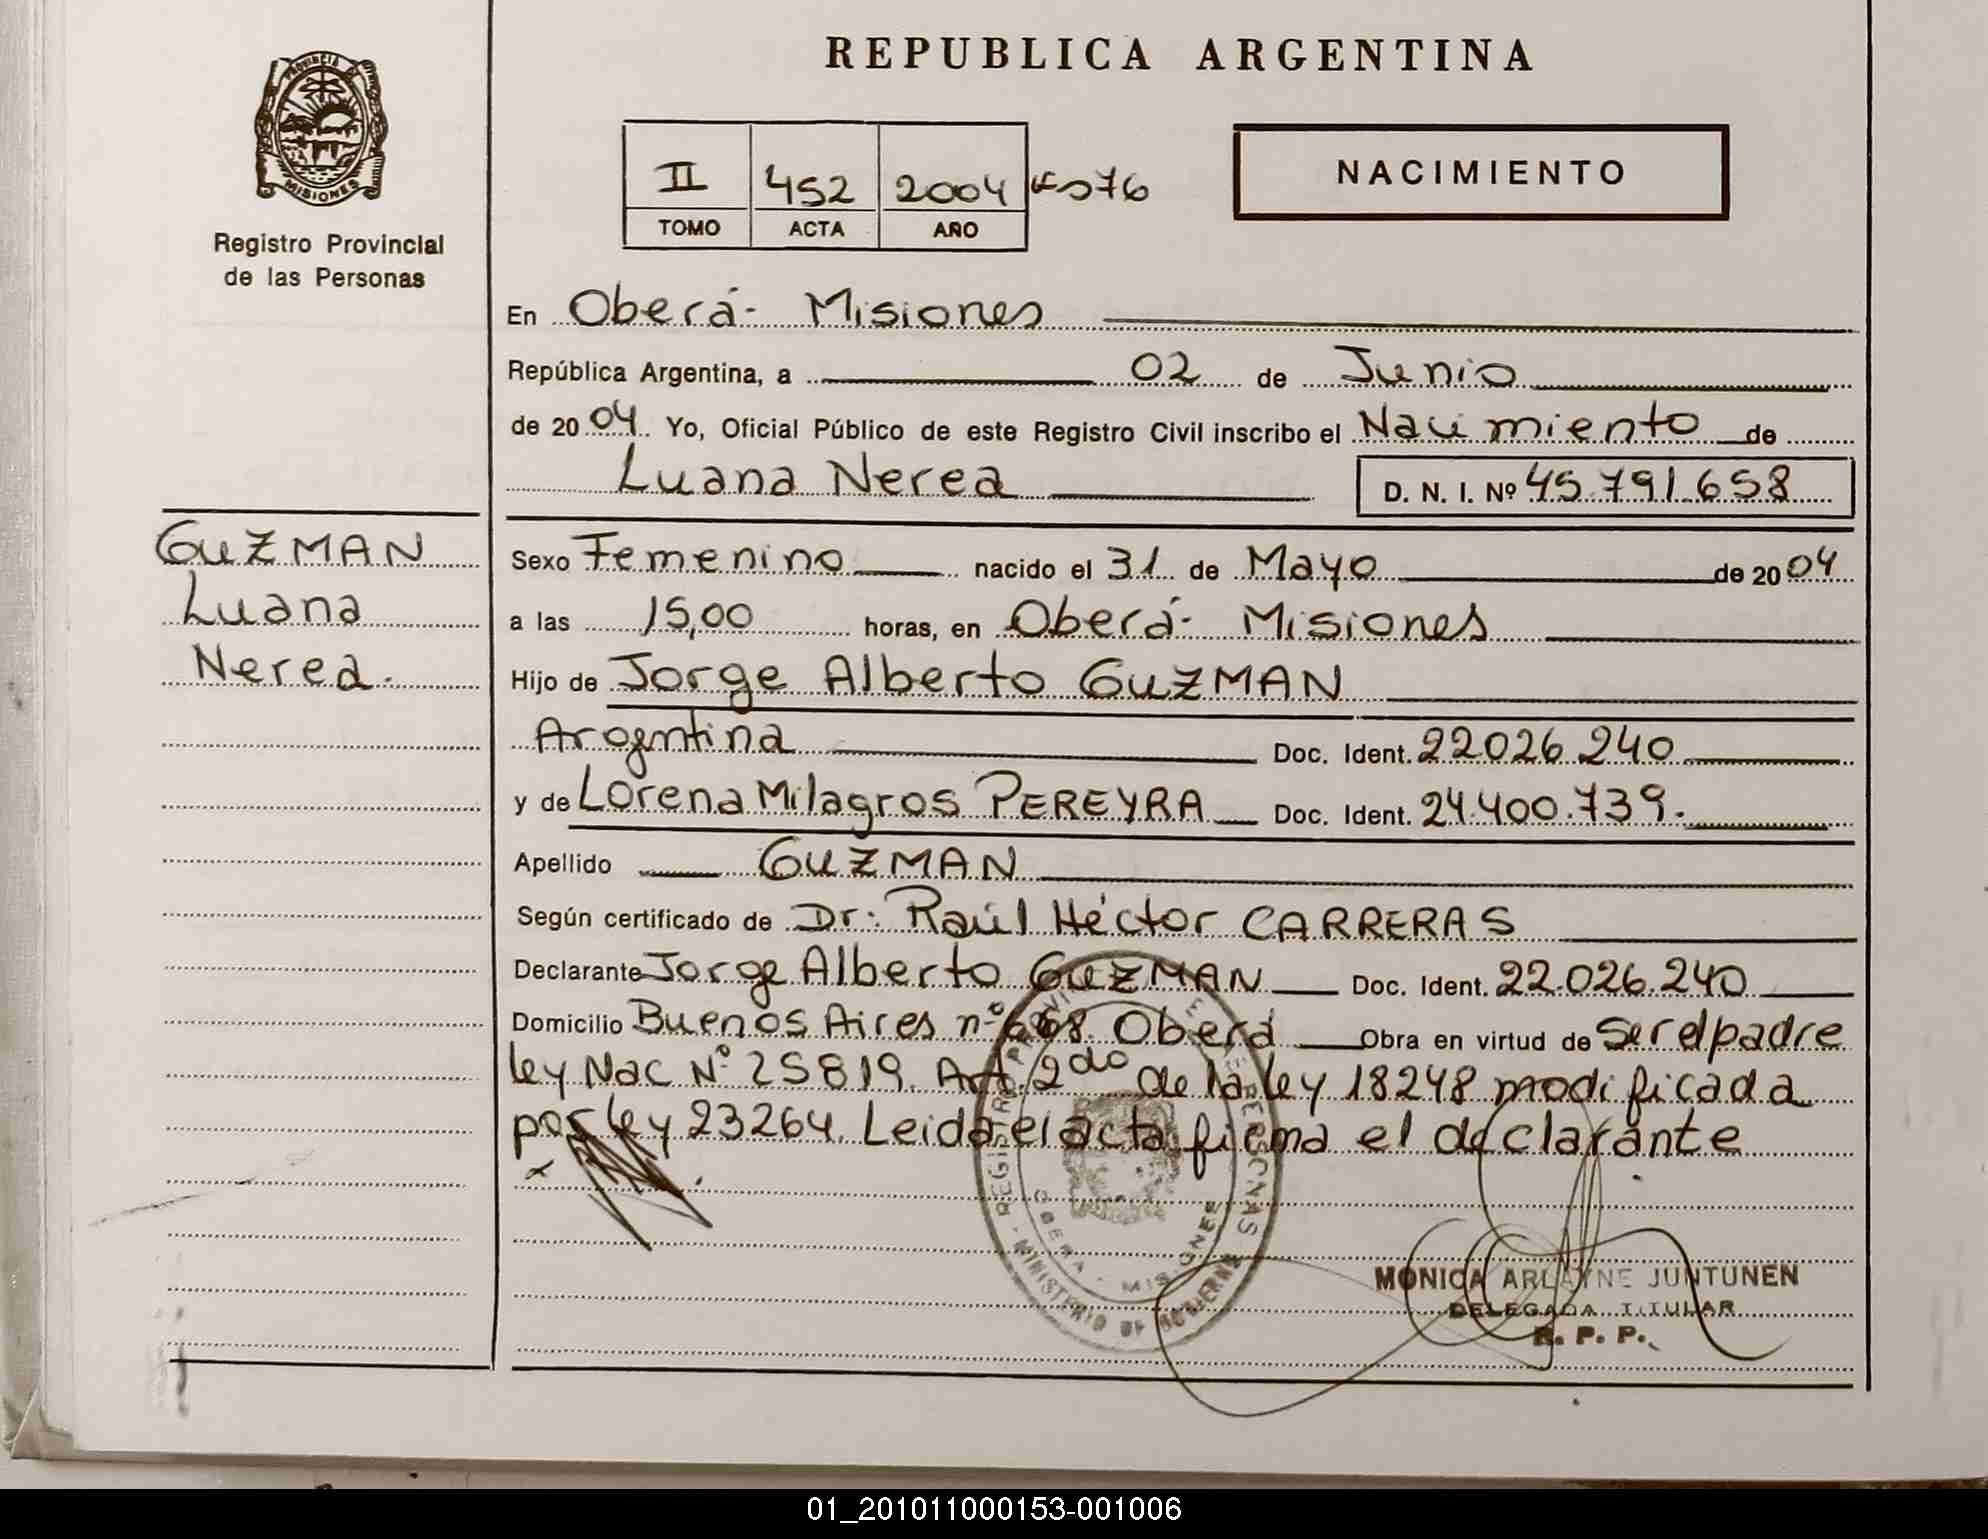 PROVINCIA DE
MISIONES
Registro Provincial
de las Personas
GUZMAN
Luana
Nerea.
REPUBLICA ARGENTINA
II 452 2004
TOMO ACTA AÑO
NACIMIENTO
En Oberá- Misiones
República Argentina, a 02 de Junio
de 2004 Yo, Oficial Público de este Registro Civil inscribo el Nacimiento de
Luana Nerea D. N. I. Nº 45.791.658
Sexo Femenino nacido el 31 de Mayo de 2004
a las 15,00 horas, en Oberá- Misiones
Hijo de Jorge Alberto GUZMAN
Argentina Doc. Ident. 22026.240
y de Lorena Milagros PEREYRA Doc. Ident. 24.400.739.
Apellido GUZMAN
Según certificado de Dr: Raúl Héctor CARRERAS
Declarante Jorge Alberto GUZMAN Doc. Ident. 22.026.240
Domicilio Buenos Aires nº 668 Oberá Obra en virtud de Ser el padre
ley Nac Nº 25819. Art. 2do de la ley 18248 modificada
por ley 23264. Leida el acta firma el declarante
x
MINISTERIO DE GOBIERNO
OBERA - MISIONES
MONICA ARLAYNE JUNTUNEN
DELEGADA TITULAR
R. P. P.
01_201011000153-001006